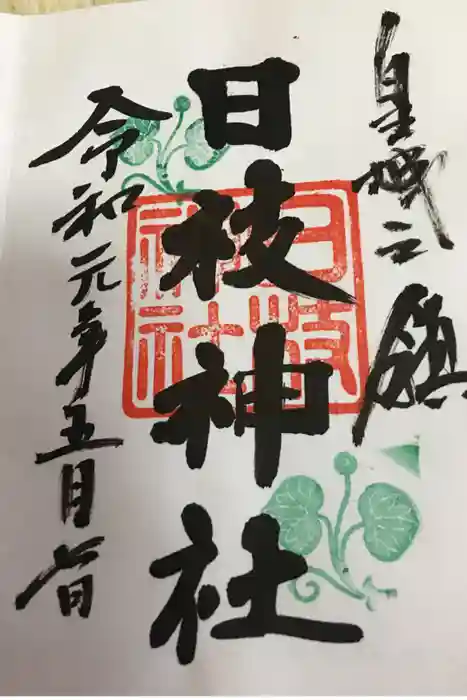 皇城之鎮
日枝神社
日枝
神社
令和元年五月七日